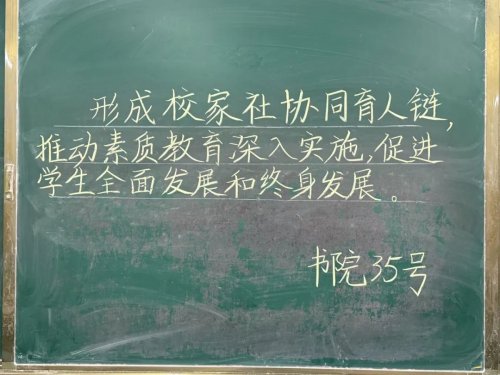 形成校家社协同育人链,
推动素质教育深入实施,促进
学生全面发展和终身发展。
书院35号